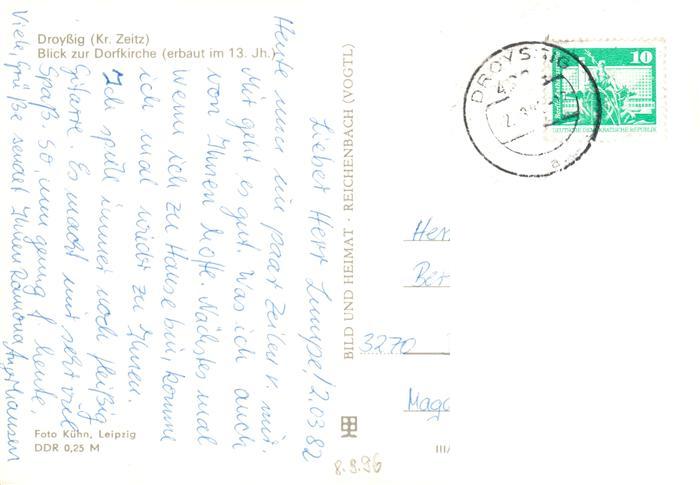 Droyßig (Kr. Zeitz)
Blick zur Dorfkirche (erbaut im 13. Jh.)
Lieber Herr Lumpe! 2.03.82
Heute nur ein paar Zeilen v. mir.
Mir geht es gut. Was ich auch
von Ihnen hoffe. Nächstes mal
wenn ich zu Hause bin, komme
ich mal wieder zu Ihnen.
Ich spiele immer noch fleißig
Gitarre. Es macht mir sehr viel
Spaß. So, nun genug f. heute,
Viele Grüße sendet Ihnen Ramona
Foto Kühn, Leipzig
DDR 0,25 M
BILD UND HEIMAT · REICHENBACH (VOGTL)
III/
8.9.96
DROYSSIG
a
10
DEUTSCHE DEMOKRATISCHE REPUBLIK
Her
Bör
3270
Magd